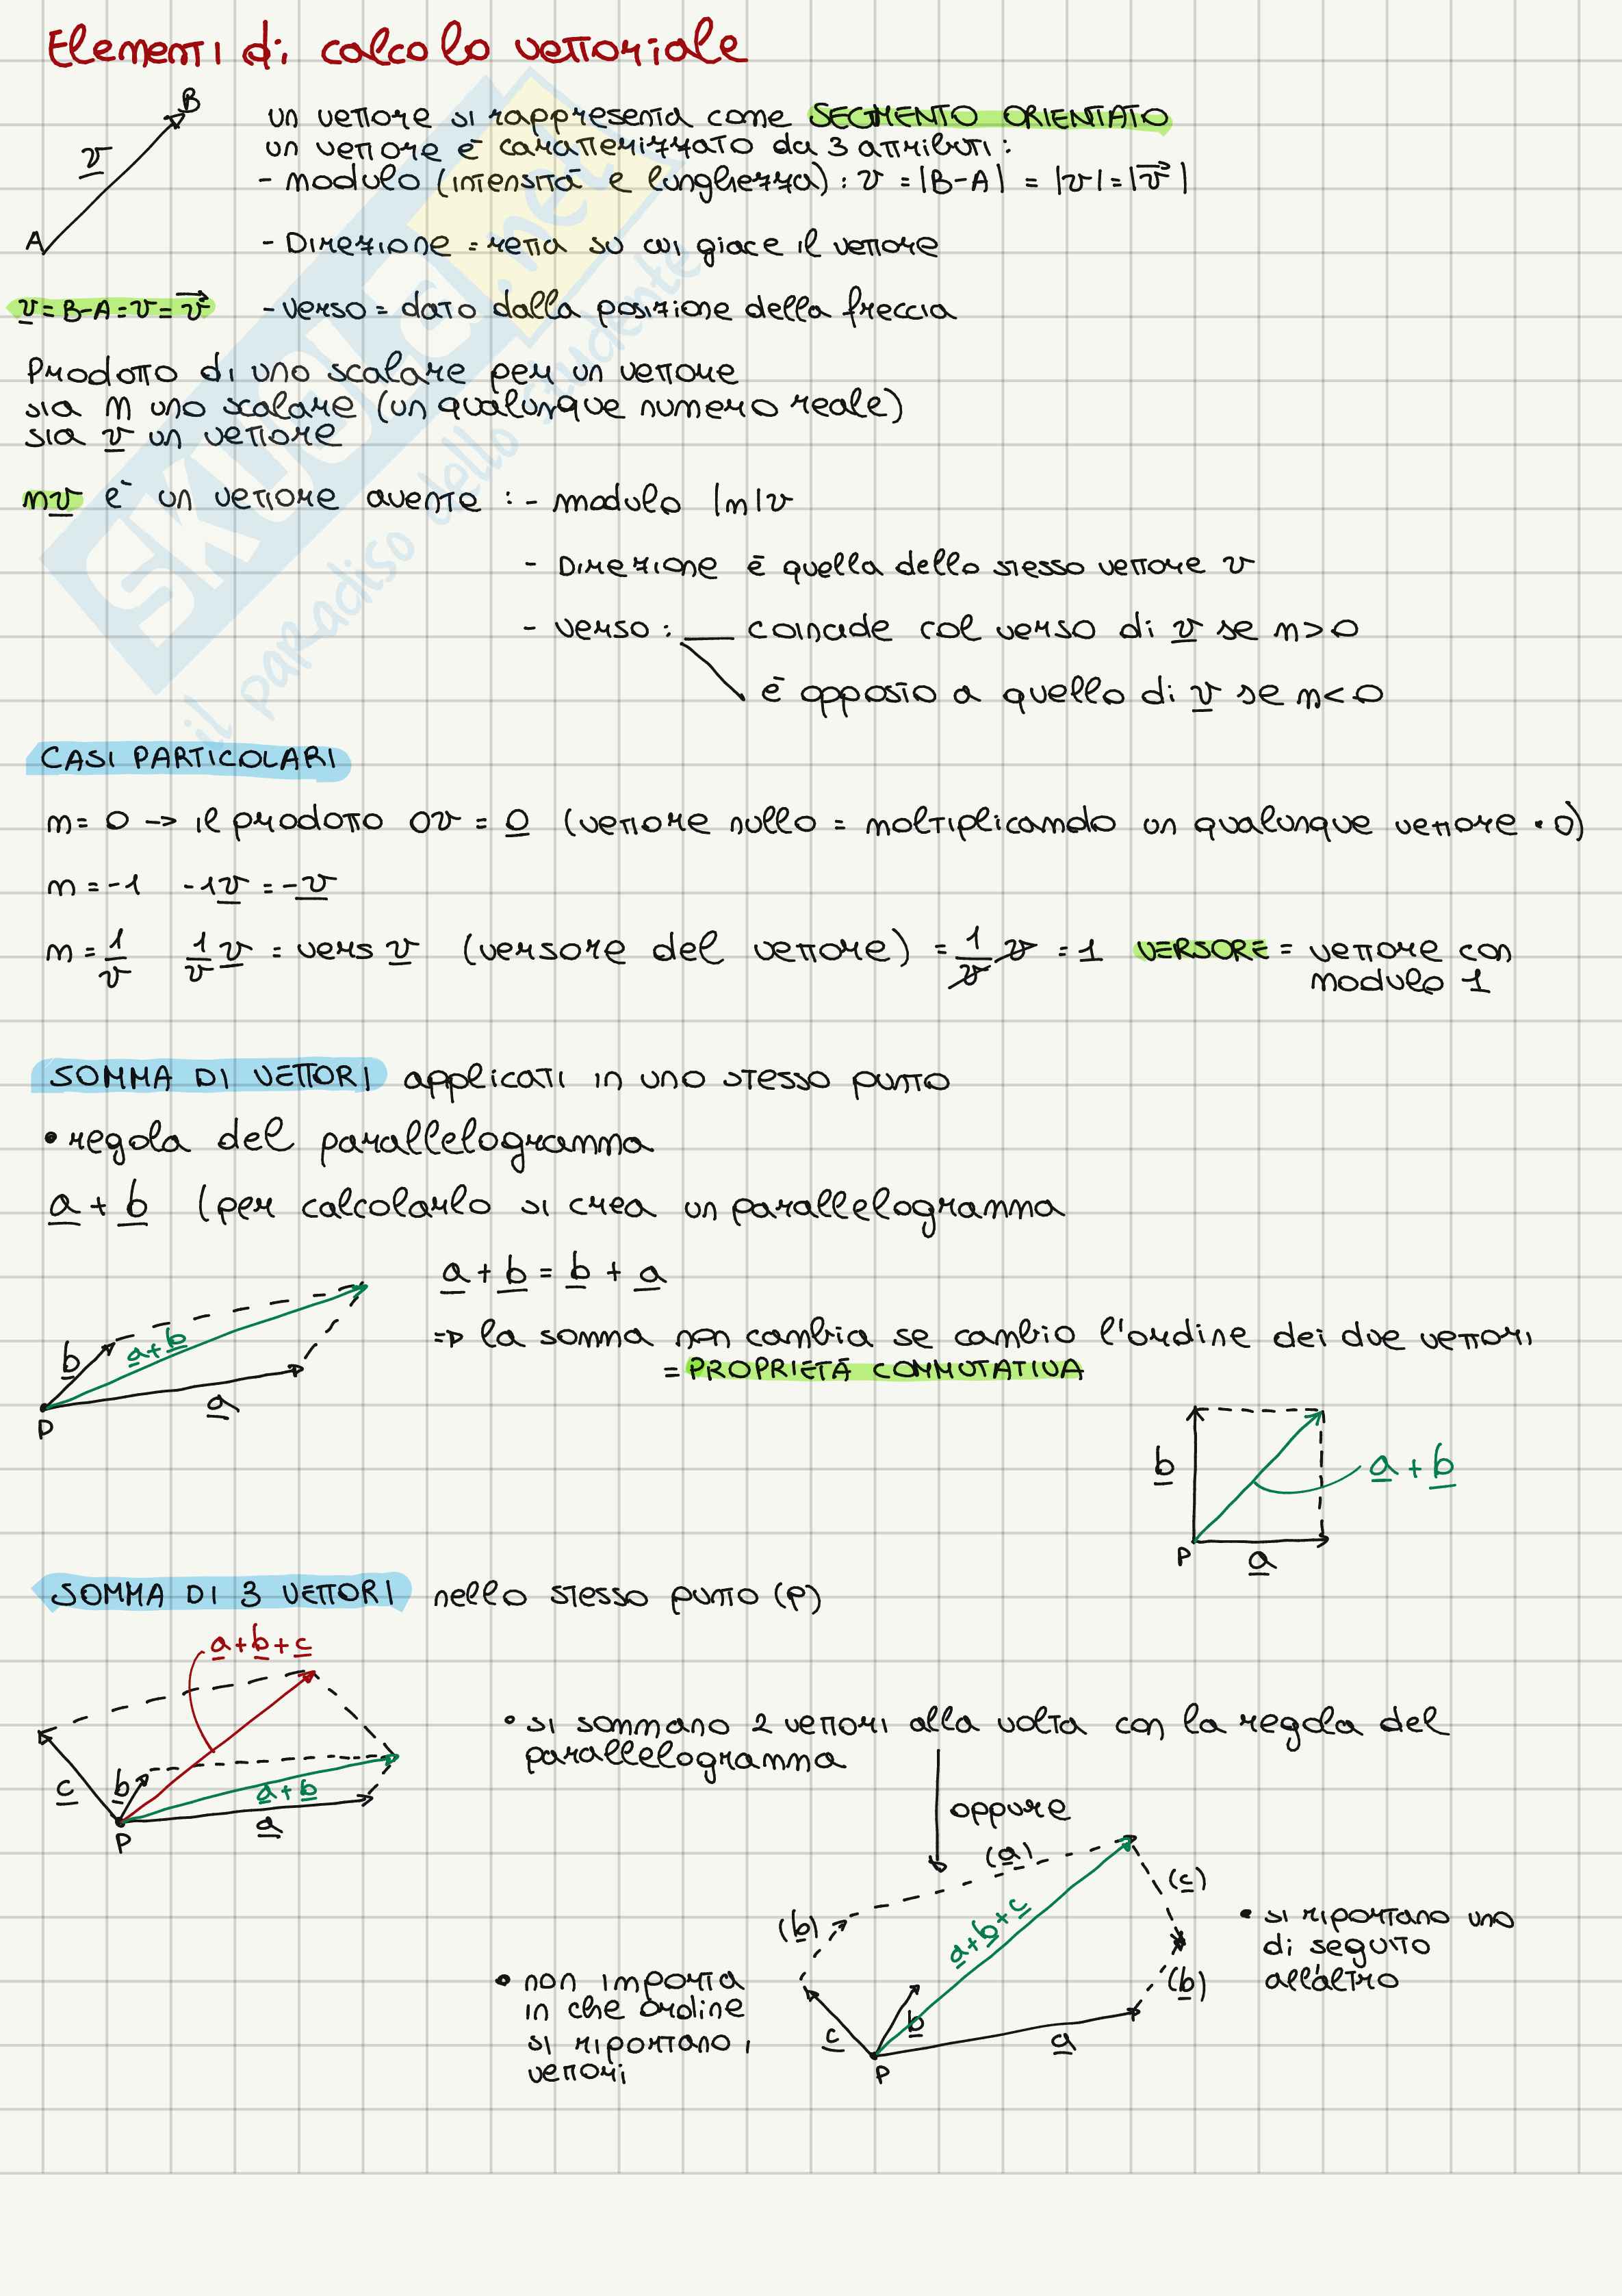 Elementi di calcolo vettoriale
B
v
A
un vettore si rappresenta come SEGMENTO ORIENTATO
un vettore è caratterizzato da 3 attributi:
- modulo (intensità e lunghezza): v = |B-A| = |v| = |v⃗|
- Direzione = retta su cui giace il vettore
v = B-A = v = v⃗
- verso = dato dalla posizione della freccia
Prodotto di uno scalare per un vettore
sia m uno scalare (un qualunque numero reale)
sia v un vettore
mv è un vettore avente : - modulo |m|v
- Direzione è quella dello stesso vettore v
- verso: coincide col verso di v se m>0
è opposto a quello di v se m<0
CASI PARTICOLARI
m = 0 -> il prodotto 0v = 0 (vettore nullo = moltiplicando un qualunque vettore · 0)
m = -1 -1v = -v
m = 1/v 1/v v = vers v (versore del vettore) = 1/v v = 1 VERSORE = vettore con
modulo 1
SOMMA DI VETTORI applicati in uno stesso punto
• regola del parallelogramma
a + b (per calcolarlo si crea un parallelogramma
a + b = b + a
=> la somma non cambia se cambio l'ordine dei due vettori
= PROPRIETÀ COMMUTATIVA
b
a+b
a
P
b
a + b
P
a
SOMMA DI 3 VETTORI nello stesso punto (P)
a+b+c
c
b
a+b
a
P
• si sommano 2 vettori alla volta con la regola del
parallelogramma
oppure
(a)
(c)
(b)
a+b+c
(b)
c
b
a
P
• si riportano uno
di seguito
all'altro
• non importa
in che ordine
si riportano i
vettori
SKUOLA.net
il paradiso dello studente